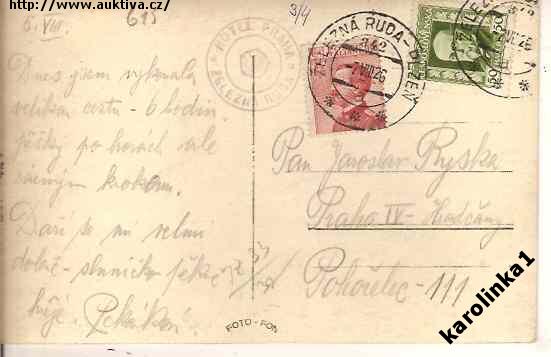 http://www.auktiva.cz/
6.VIII.
615
3/4
HOTEL PRAHA
ŽELEZNÁ RUDA
ŽELEZNÁ RUDA - PLZEŇ
342
-7.VIII.26
50 50
Dnes jsem vykonala
velikou cestu - 6 hodin
pěšky po horách ale
krokem.
Daří se mi velmi
dobře - sluníčko pěkně
hřeje.
Pan Jaroslav Ryska
Praha IV - Hradčany
Pohořelec - 111
FOTO-FON
karolinka1